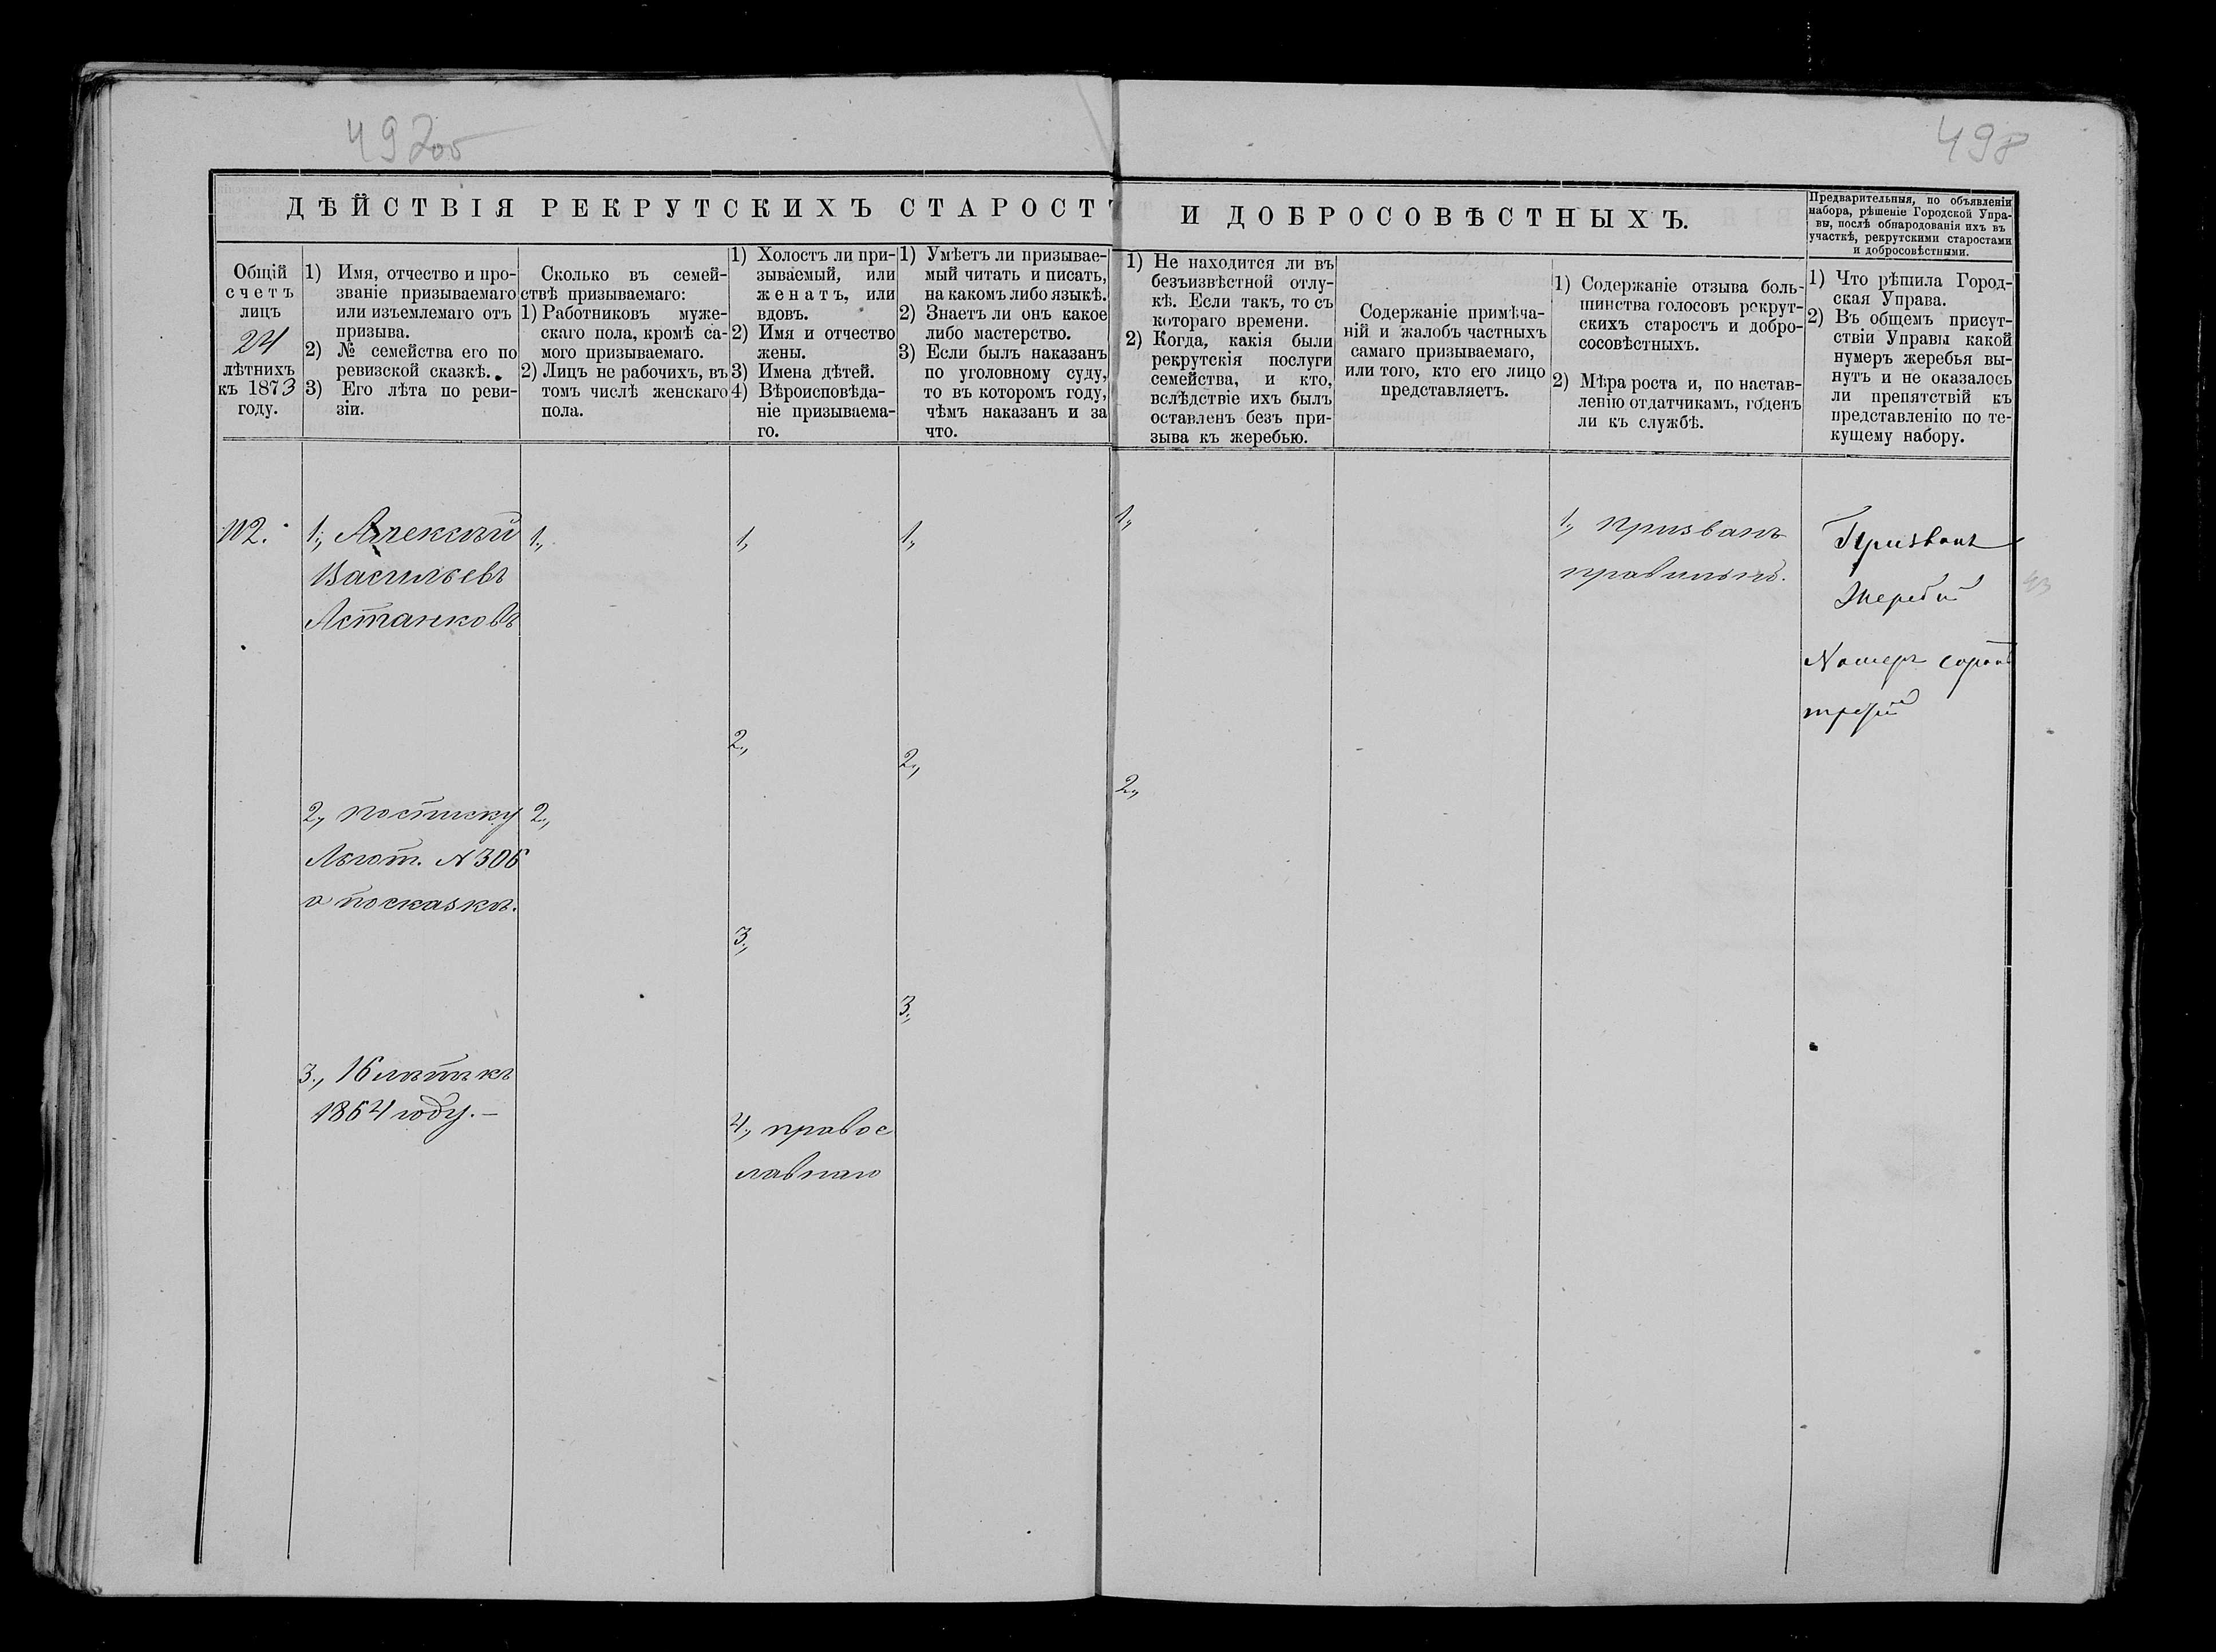 497об
498
ДѢЙСТВІЯ РЕКРУТСКИХЪ СТАРОСТЪ И ДОБРОСОВѢСТНЫХЪ.
Предварительныя, по объявленіи
набора, рѣшеніе Городской Упра-
вы, послѣ обнародованія ихъ въ
участкѣ, рекрутскими старостами
и добросовѣстными.
Общій
счетъ
лицъ
24
лѣтнихъ
къ 1873
году.
1) Имя, отчество и про-
званіе призываемаго
или изъемлемаго отъ
призыва.
2) № семейства его по
ревизской сказкѣ.
3) Его лѣта по реви-
зіи.
Сколько въ семей-
ствѣ призываемаго:
1) Работниковъ муже-
скаго пола, кромѣ са-
мого призываемаго.
2) Лицъ не рабочихъ, въ
томъ числѣ женскаго
пола.
1) Холостъ ли при-
зываемый, или
женатъ, или
вдовъ.
2) Имя и отчество
жены.
3) Имена дѣтей.
4) Вѣроисповѣда-
ніе призываема-
го.
1) Умѣетъ ли призывае-
мый читать и писать,
на какомъ либо языкѣ.
2) Знаетъ ли онъ какое
либо мастерство.
3) Если былъ наказанъ
по уголовному суду,
то въ которомъ году,
чѣмъ наказанъ и за
что.
1) Не находится ли въ
безъизвѣстной отлу-
кѣ. Если такъ, то съ
котораго времени.
2) Когда, какія были
рекрутскія послуги
семейства, и кто,
вслѣдствіе ихъ былъ
оставленъ безъ при-
зыва къ жеребью.
Содержаніе примѣча-
ній и жалобъ частныхъ
самаго призываемаго,
или того, кто его лицо
представляетъ.
1) Содержаніе отзыва боль-
шинства голосовъ рекрут-
скихъ старостъ и добро-
сосовѣстныхъ.
2) Мѣра роста и, по настав-
ленію отдатчикамъ, годенъ
ли къ службѣ.
1) Что рѣшила Город-
ская Управа.
2) Въ общемъ присут-
ствіи Управы какой
нумеръ жеребья вы-
нутъ и не оказалось
ли препятствій къ
представленію по те-
кущему набору.
112.
1., Алексѣй
Васильевъ
Астанковъ
2., по списку
Льгот. № 306
а по сказкѣ.
3., 16 лѣтъ къ
1864 году. —
1.,
2.,
1.,
2.,
3.,
4., правос
лавнаго
1.,
2.,
3.,
1.,
2.,
1., призванъ
правильно.
Призванъ
Жеребій
Номеръ сорокъ
третій
43